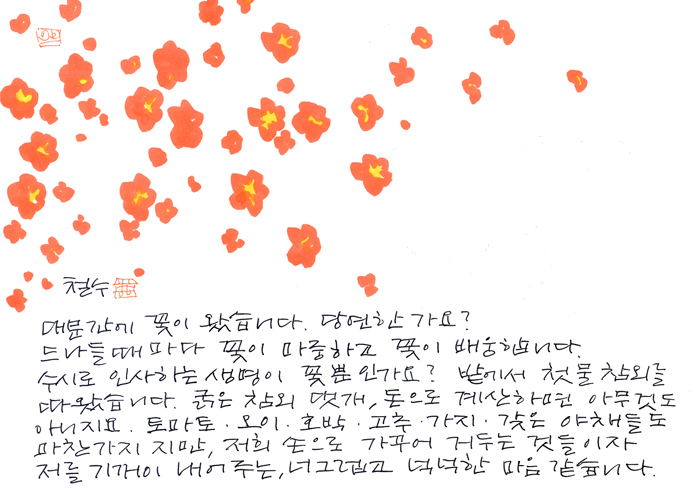 철수
대문간에 꽃이 왔습니다. 당연한가요?
드나들때마다 꽃이 마중하고 꽃이 배웅합니다.
수시로 인사하는 생명이 꽃뿐인가요? 밭에서 첫물참외를
따왔습니다. 굵은 참외 몇개, 돈으로 계산하면 아무것도
아니지요. 토마토·오이·호박·고추·가지·갖은 야채들도
마찬가지지만, 저희 손으로 가꾸어 거두는 것들이자
저를 기꺼이 내어주는, 너그럽고 넉넉한 마음 같습니다.